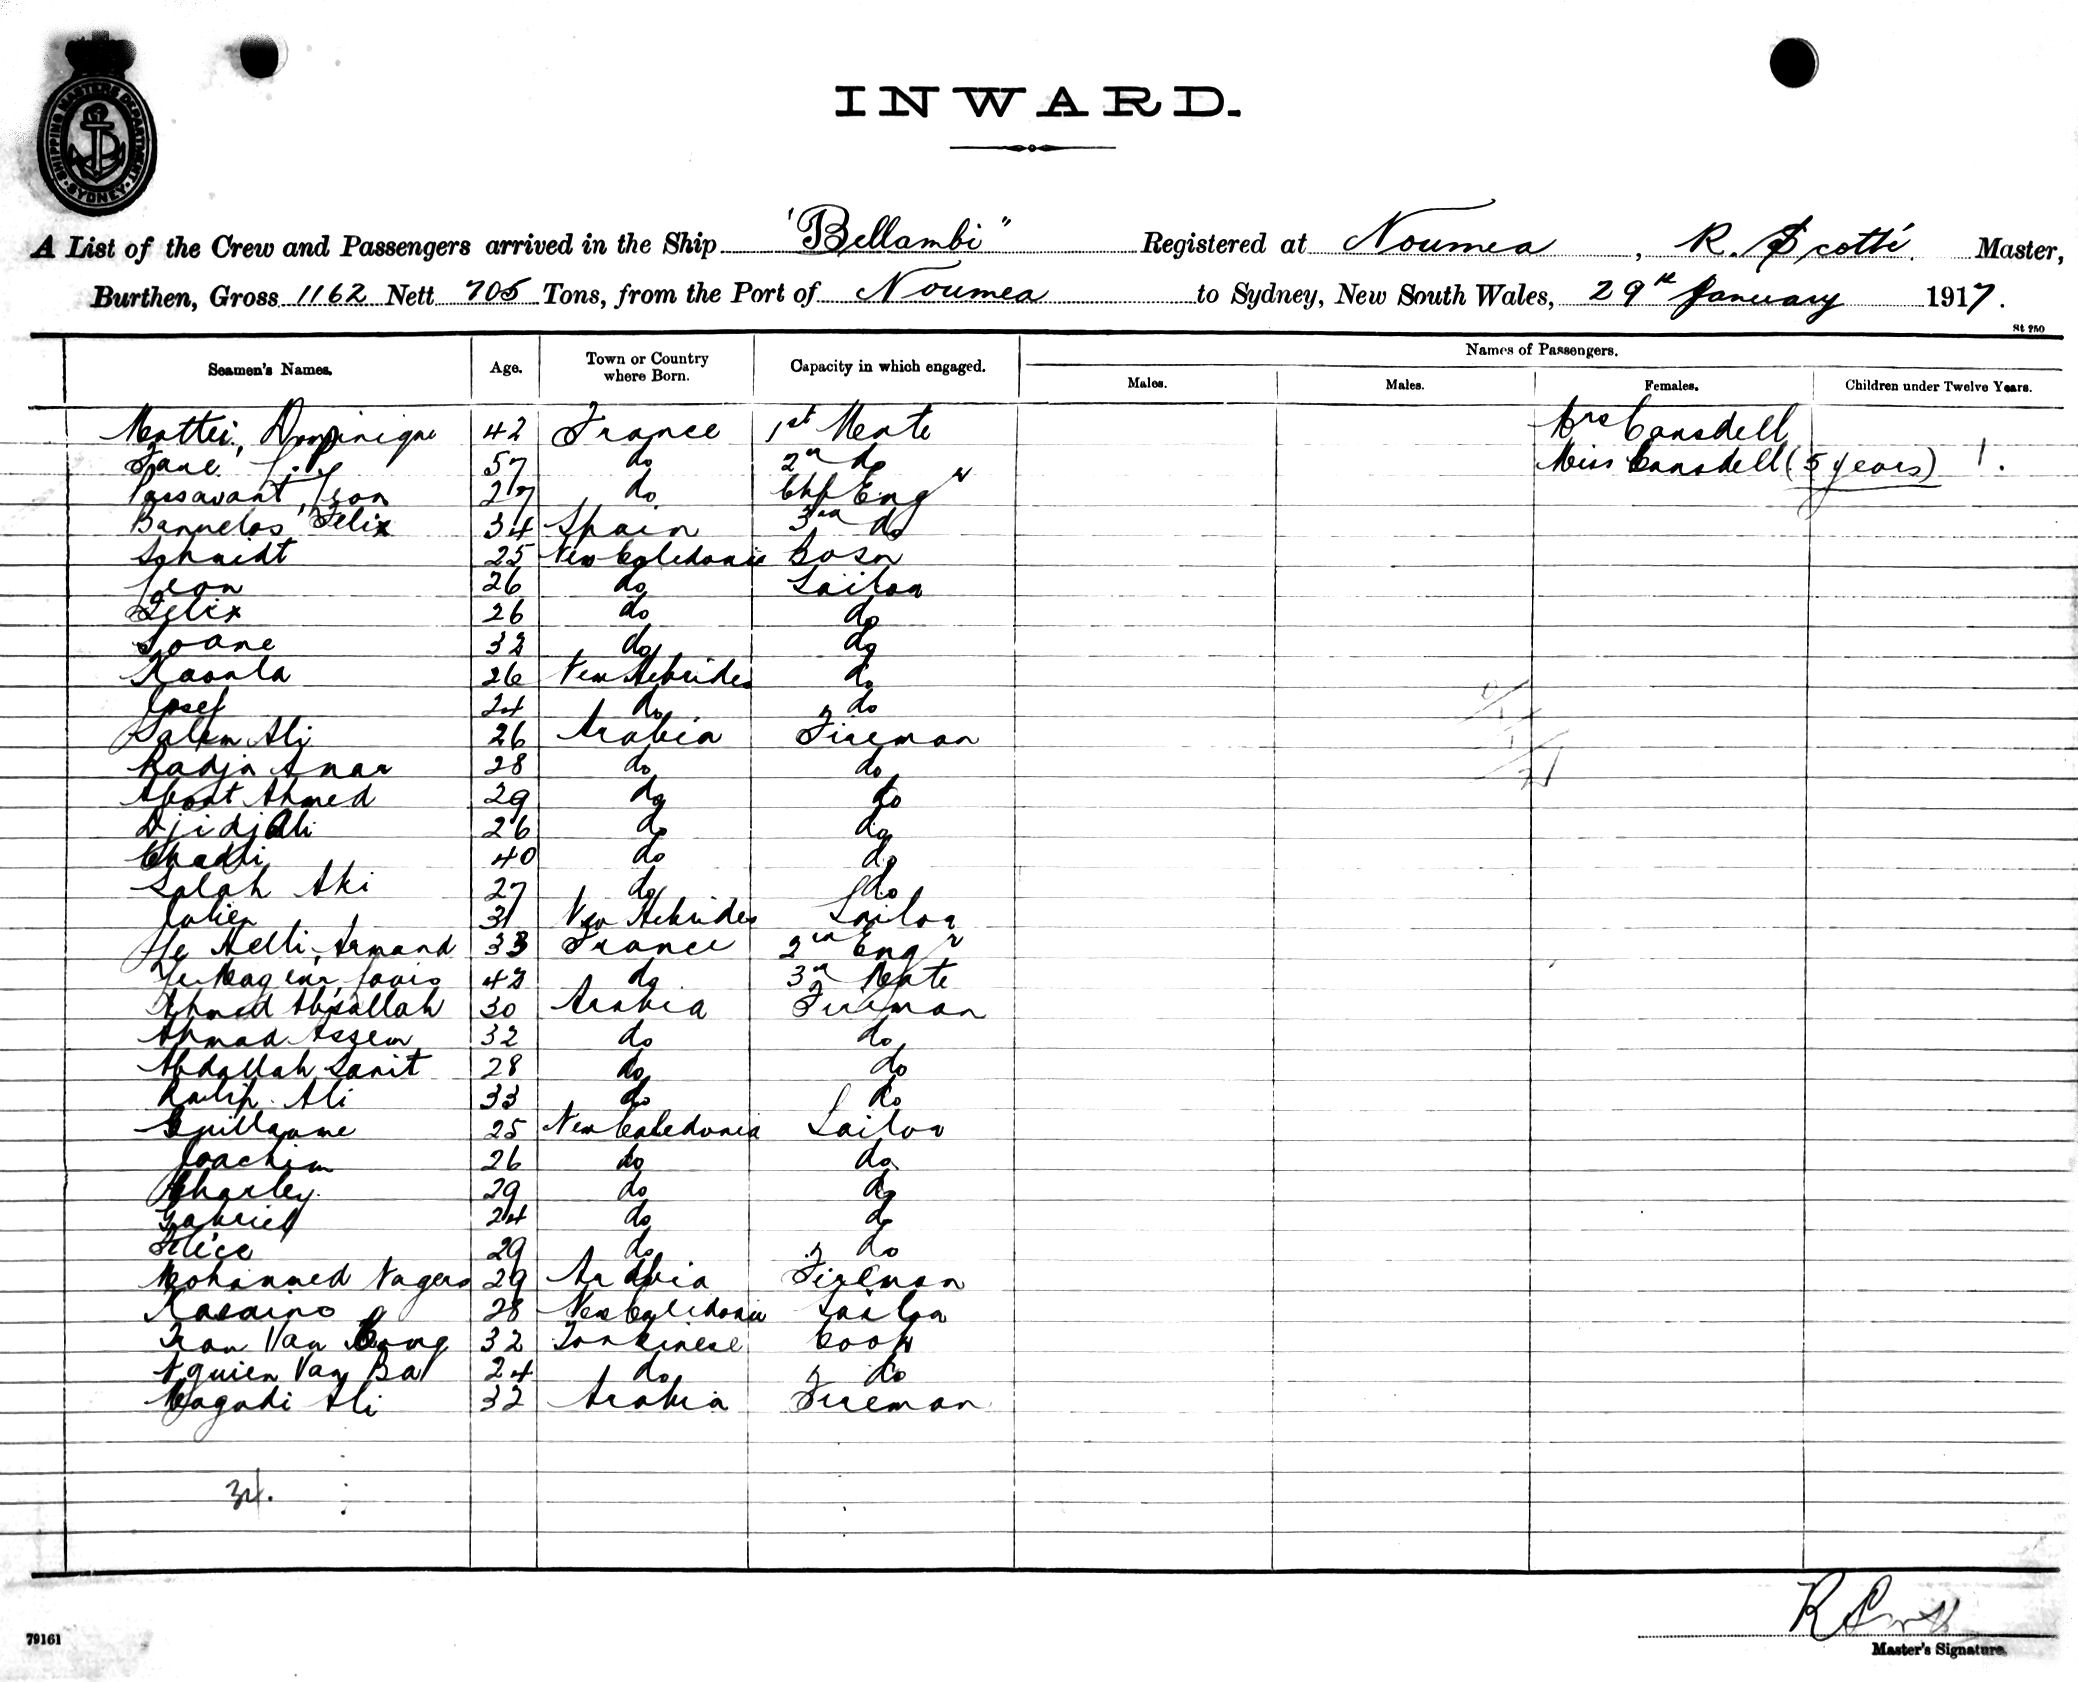 SHIPPING MASTERS DEPARTMENT SYDNEY
INWARD.
A List of the Crew and Passengers arrived in the Ship "Bellambi" Registered at Noumea, R. Scotté. Master,
Burthen, Gross 1162 Nett 705 Tons, from the Port of Noumea to Sydney, New South Wales, 29th January 1917.
St 250
Seamen's Names. Age. Town or Country where Born. Capacity in which engaged. Names of Passengers.
Males. Males. Females. Children under Twelve Years.
Mattei, Dominique 42 France 1st Mate Mrs Cansdell
57 do 2nd do Miss Cansdell (5 years) 1.
Passavant, Leon 27 do Chf Engr
Banuelos, Felix 34 Spain 3rd do
Schmidt 25 New Caledonia Bosn
Leon 26 do Sailor
Felix 26 do do
Soane 32 do do
Kaoula 26 New Hebrides do
Josef 24 do do
Salem Ali 26 Arabia Fireman
Radja Anar 28 do do
Ahmed 29 do do
Djidj Ali 26 do do
Chadli 40 do do
Salah Aki 27 do do
Julien 31 New Hebrides Sailor
Le Helli, Armand 33 France 2nd Engr
Louis 42 do 3rd Mate
Ahmed Abdallah 30 Arabia Fireman
Ahmad Assem 32 do do
Abdallah Sanit 28 do do
Ali 33 do do
Guillaume 25 New Caledonia Sailor
Joachim 26 do do
Charley. 29 do do
Gabriel 24 do do
29 do do
Mohammed Nagers 29 Arabia Fireman
Kasaino 28 New Caledonia Sailor
Tran Van Cong 32 Tonkinese Cook
Nguien Van Ba 24 do do
Magadi Ali 32 Arabia Fireman
34.
79161
Master's Signature.